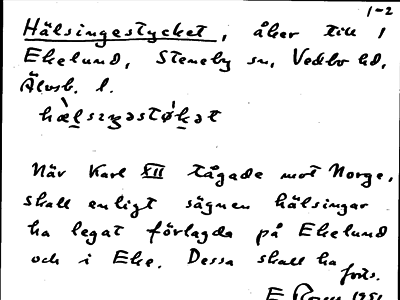 1-2
Hälsingestycket, åker till 1
Ekelund, Steneby sn, Vedbo hd,
Älvsb. l.
hæ̀lsɪŋəstø̀kət
När Karl XII tågade mot Norge,
skall enligt sägnen hälsingar
ha legat förlagda på Ekelund
och i Eke. Dessa skall ha
forts.
E.